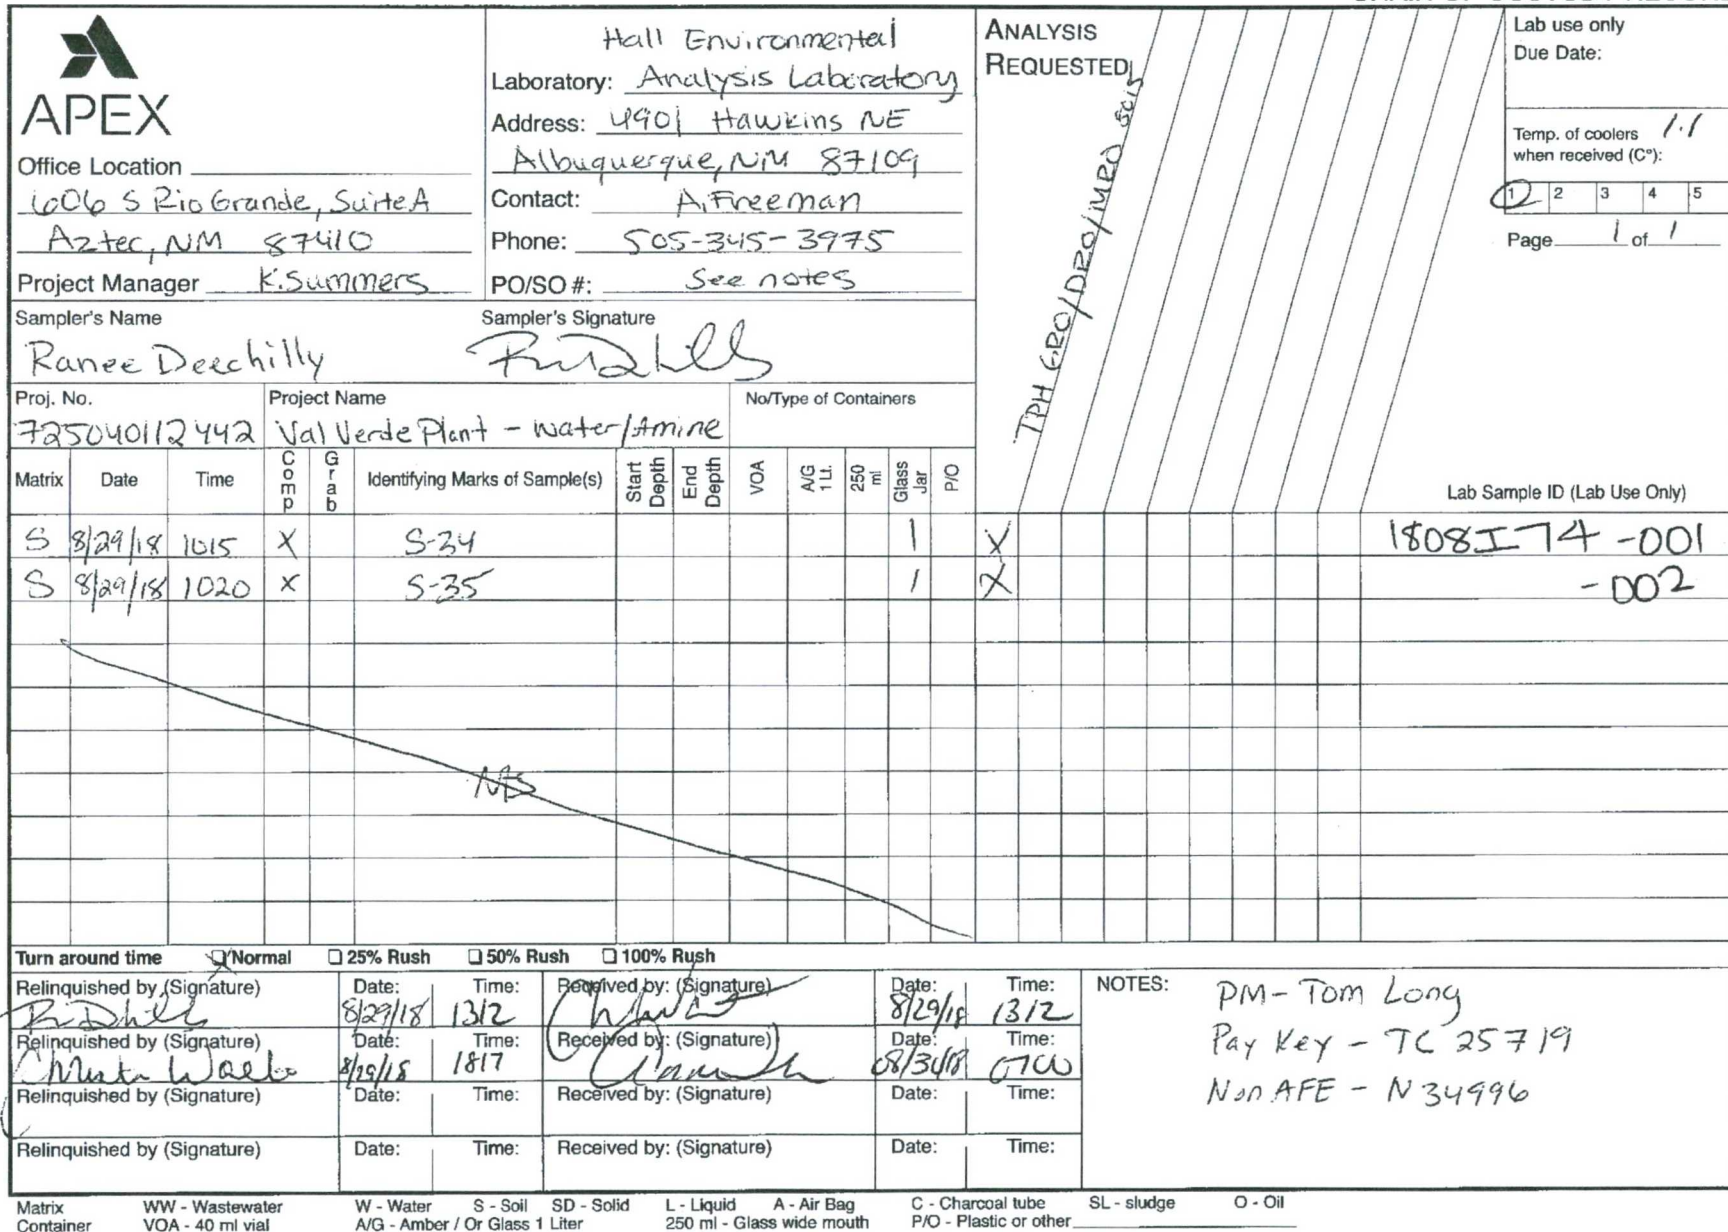 APEX
Office Location
606 S Rio Grande, Suite A
Aztec, NM 87410
Project Manager K. Summers
Hall Environmental
Laboratory: Analysis Laboratory
Address: 4901 Hawkins NE
Albuquerque, NM 87109
Contact: A. Freeman
Phone: 505-345-3975
PO/SO #: See notes
ANALYSIS
REQUESTED
TPH GRO/DRO/MRO 8015
Lab use only
Due Date:
Temp. of coolers 1.1
when received (C°):
1 2 3 4 5
Page 1 of 1
Sampler's Name Sampler's Signature
Ranee Deechilly
Proj. No. Project Name No/Type of Containers
725040112442 Val Verde Plant - Water/Amine
Matrix Date Time Comp Grab Identifying Marks of Sample(s) Start Depth End Depth VOA A/G 1 Lt. 250 ml Glass Jar P/O Lab Sample ID (Lab Use Only)
S 8/29/18 1015 X S-34 1 X 1808I74 -001
S 8/29/18 1020 X S-35 1 X -002
Turn around time Normal 25% Rush 50% Rush 100% Rush
Relinquished by (Signature) Date: Time: Received by: (Signature) Date: Time: NOTES:
8/29/18 1312 8/29/18 1312
PM - Tom Long
Relinquished by (Signature) Date: Time: Received by: (Signature) Date: Time:
8/29/18 1817 0700
Pay Key - TC 25719
Non AFE - N 34996
Relinquished by (Signature) Date: Time: Received by: (Signature) Date: Time:
Relinquished by (Signature) Date: Time: Received by: (Signature) Date: Time:
Matrix WW - Wastewater W - Water S - Soil SD - Solid L - Liquid A - Air Bag C - Charcoal tube SL - sludge O - Oil
Container VOA - 40 ml vial A/G - Amber / Or Glass 1 Liter 250 ml - Glass wide mouth P/O - Plastic or other